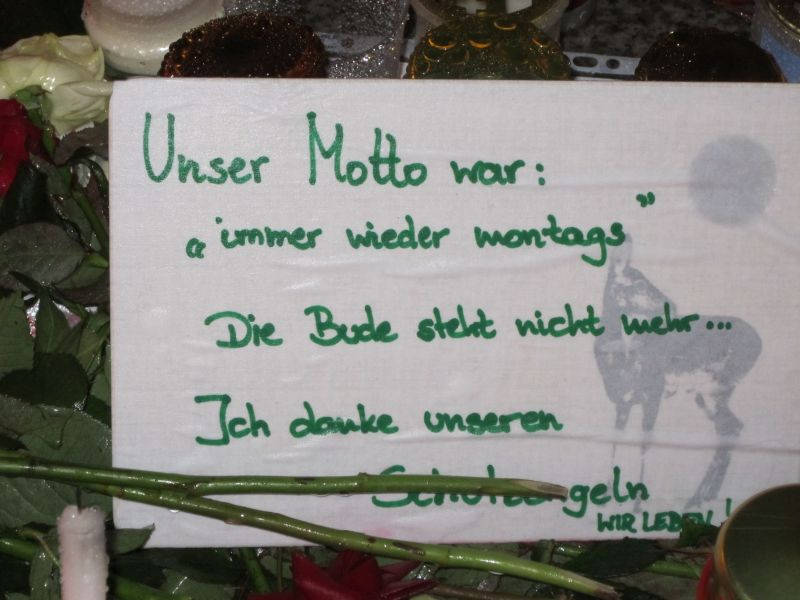 Unser Motto war:
„immer wieder montags”
Die Bude steht nicht mehr...
Ich danke unseren
Schutzengeln
WIR LEBEN!